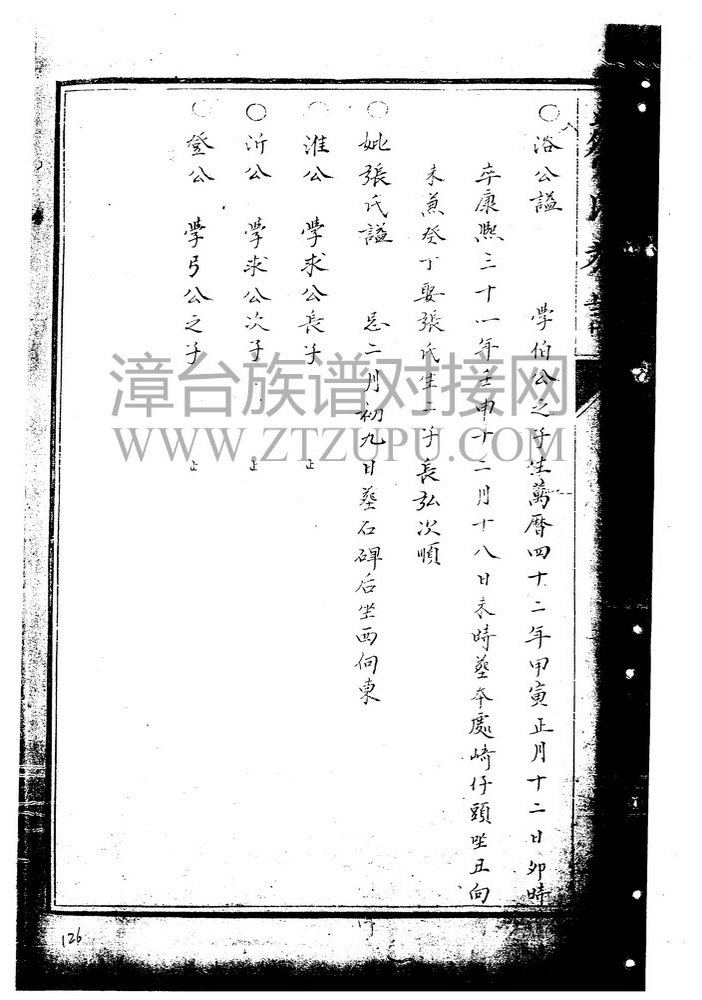 ○浴公謚 學伯公之子生萬曆四十二年甲寅正月十二日卯時
卒康熙三十一年壬申十二月十八日未時墓本處崎仔頭坐丑向
未兼癸丁娶張氏生二子長弘次順
○妣張氏謚 忌二月初九日墓石碑后坐西向東
○淮公 學求公長子 止
○沂公 學求公次子 止
○登公 學弓公之子 止
漳台族谱对接网
WWW.ZTZUPU.COM
126